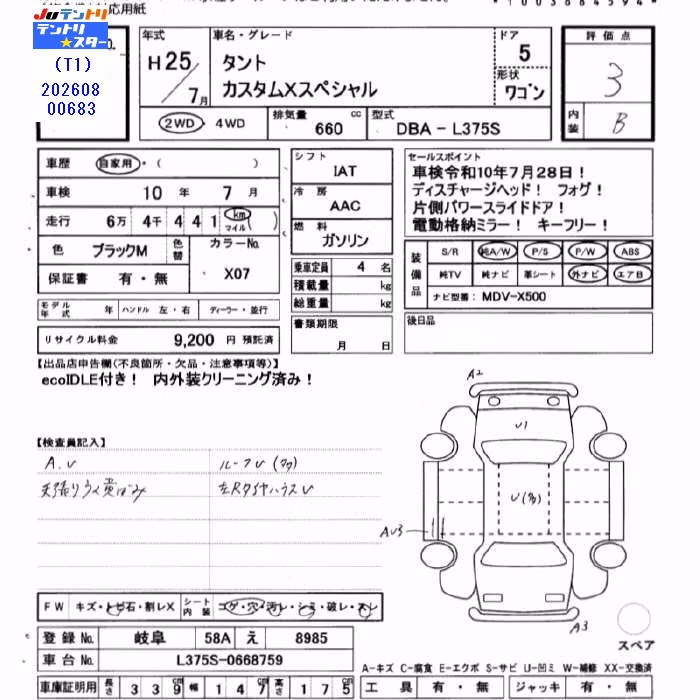 応用紙
*1003684594*
JUテントリ
テントリ
スター
(T1)
202608
00683
年式
H25/7月
車名・グレード
タント
カスタムXスペシャル
ドア
5
形状
ワゴン
評価点
3
内装
B
2WD・4WD
排気量
660
cc
型式
DBA-L375S
車歴 自家用・( )
車検 10年 7月
走行 6万 4千 4 4 1 km マイル
色 ブラックM 色替 カラーNo. X07
保証書 有・無
モデル年式 年 ハンドル 左・右 ディーラー・並行
リサイクル料金 9,200 円 預託済
シフト
IAT
冷房
AAC
燃料
ガソリン
乗車定員 4 名
積載量 kg
総重量 kg
書類期限
月 日
セールスポイント
車検令和10年7月28日!
ディスチャージヘッド! フォグ!
片側パワースライドドア!
電動格納ミラー! キーフリー!
装備品
S/R 純A/W P/S P/W ABS
純TV 純ナビ 革シート 外ナビ エアB
ナビ型番: MDV-X500
後日品
【出品店申告欄(不良箇所・欠品・注意事項等)】
ecoIDLE付き! 内外装クリーニング済み!
【検査員記入】
A.U
天張りうく黄ばみ
ルーフU(多)
左Rタイヤハウス U
A2
U1
U(多)
AU3
A3
スペア
FW キズ・トビ石・割レX シート内装 コゲ・穴・汚レ・シミ・破レ・スレ
登録No. 岐阜 58A え 8985
車台No. L375S-0668759
車庫証明用 長さ 3 3 9 幅 1 4 7 高さ 1 7 5
A-キズ C-腐食 E-エクボ S-サビ U-凹ミ W-補修 XX-交換済
工具 有・無 ジャッキ 有・無